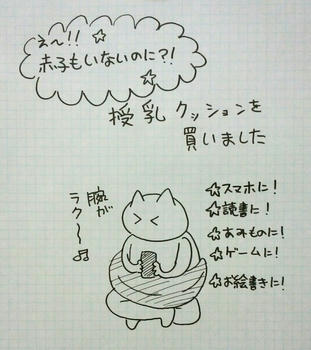 え～!!☆
赤子もいないのに?!
☆
授乳クッションを
買いました
腕が
ラク～♫
☆スマホに!
☆読書に!
☆あみものに!
☆ゲームに!
☆お絵書きに!